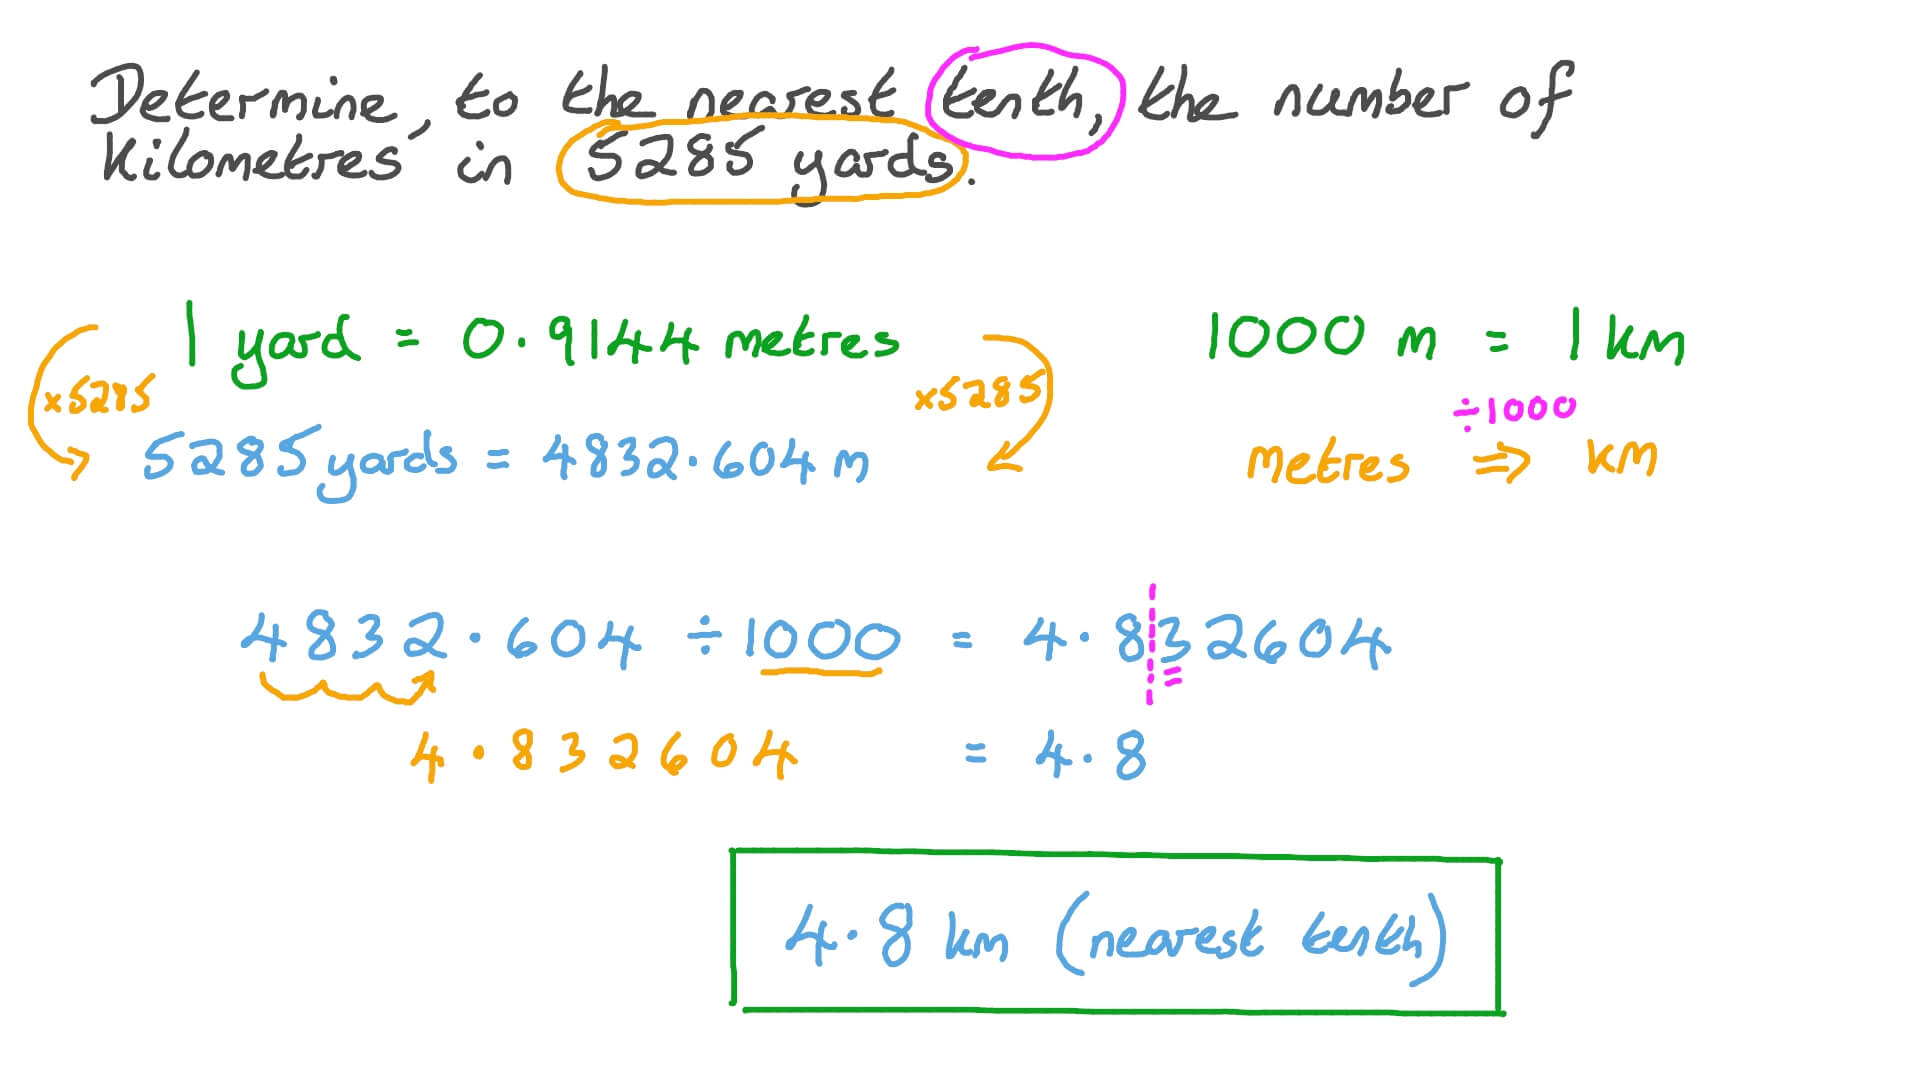 Determine, to the nearest tenth, the number of
kilometres in 5285 yards.
1 yard = 0.9144 metres
1000 m = 1 km
×5285
×5285
÷1000
5285 yards = 4832.604 m
metres ⇒ km
4832.604 ÷ 1000 = 4.832604
4.832604 = 4.8
4.8 km (nearest tenth)